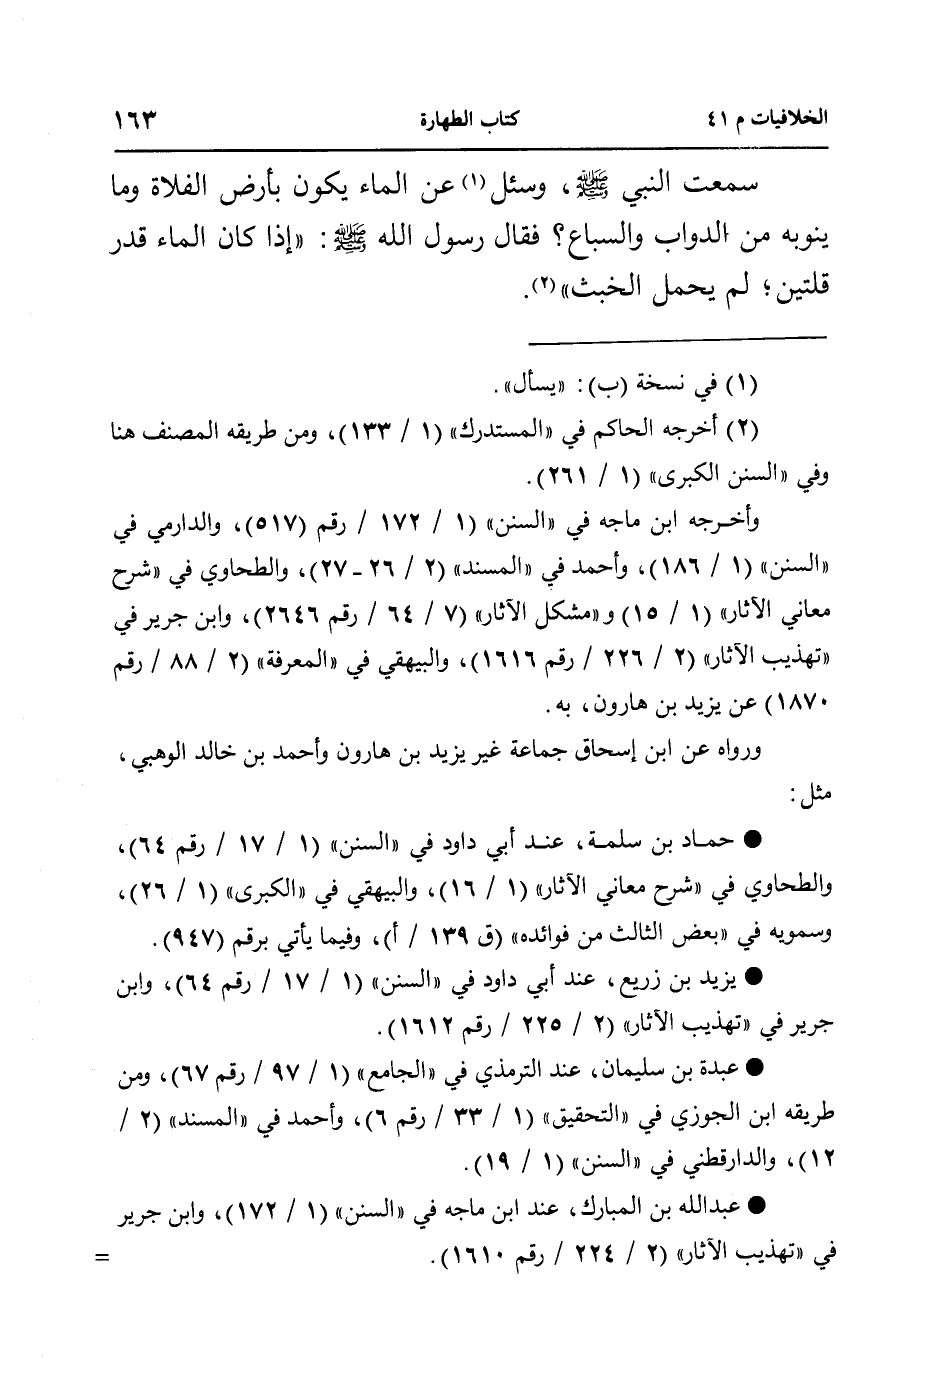 الخلافيات م ٤١ كتاب الطهارة ١٦٣
سمعت النبي ﷺ، وسئل(١) عن الماء يكون بأرض الفلاة وما
ينوبه من الدواب والسباع؟ فقال رسول الله ﷺ: «إذا كان الماء قدر
قلتين؛ لم يحمل الخبث»(٢).
(١) في نسخة (ب): «يسأل».
(٢) أخرجه الحاكم في «المستدرك» (١ / ١٣٣)، ومن طريقه المصنف هنا
وفي «السنن الكبرى» (١ / ٢٦١).
وأخرجه ابن ماجه في «السنن» (١ / ١٧٢ / رقم ٥١٧)، والدارمي في
«السنن» (١ / ١٨٦)، وأحمد في «المسند» (٢ / ٢٦ ـ ٢٧)، والطحاوي في «شرح
معاني الآثار» (١ / ١٥) و«مشكل الآثار» (٧ / ٦٤ / رقم ٢٦٤٦)، وابن جرير في
«تهذيب الآثار» (٢ / ٢٢٦ / رقم ١٦١٦)، والبيهقي في «المعرفة» (٢ / ٨٨ / رقم
١٨٧٠) عن يزيد بن هارون، به.
ورواه عن ابن إسحاق جماعة غير يزيد بن هارون وأحمد بن خالد الوهبي،
مثل:
● حماد بن سلمة، عند أبي داود في «السنن» (١ / ١٧ / رقم ٦٤)،
والطحاوي في «شرح معاني الآثار» (١ / ١٦)، والبيهقي في «الكبرى» (١ / ٢٦)،
وسمويه في «بعض الثالث من فوائده» (ق ١٣٩ / أ)، وفيما يأتي برقم (٩٤٧).
● يزيد بن زريع، عند أبي داود في «السنن» (١ / ١٧ / رقم ٦٤)، وابن
جرير في «تهذيب الآثار» (٢ / ٢٢٥ / رقم ١٦١٢).
● عبدة بن سليمان، عند الترمذي في «الجامع» (١ / ٩٧ / رقم ٦٧)، ومن
طريقه ابن الجوزي في «التحقيق» (١ / ٣٣ / رقم ٦)، وأحمد في «المسند» (٢ /
١٢)، والدارقطني في «السنن» (١ / ١٩).
● عبدالله بن المبارك، عند ابن ماجه في «السنن» (١ / ١٧٢)، وابن جرير
في «تهذيب الآثار» (٢ / ٢٢٤ / رقم ١٦١٠). =